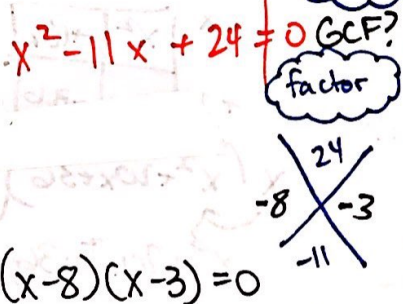 x² - 11x + 24 = 0 GCF?
factor
24
-8 -3
-11
(x-8)(x-3) = 0